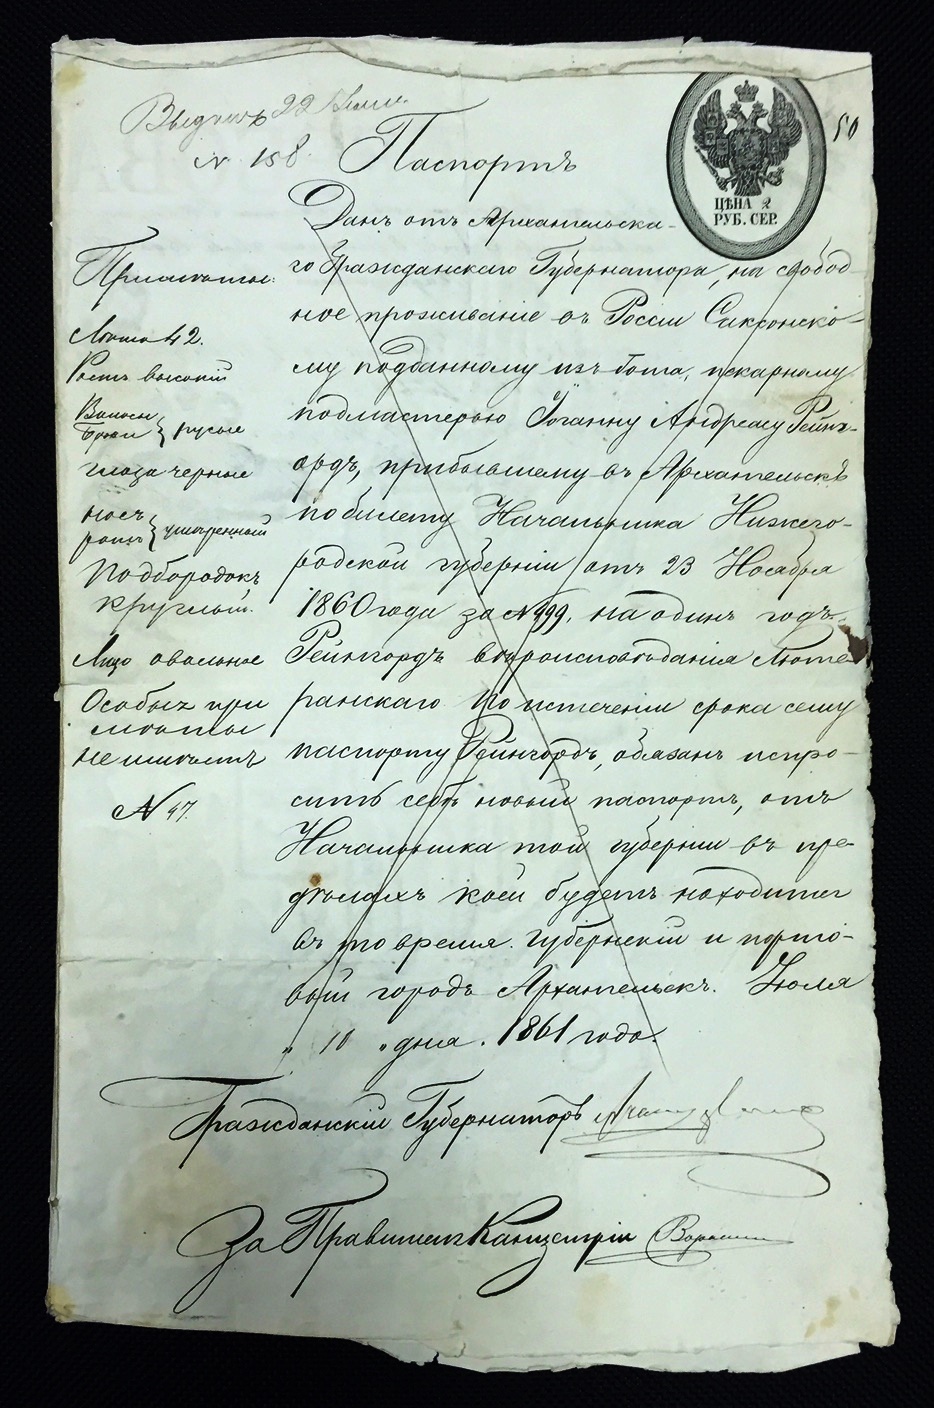 Выданъ 22 Июля
№ 158.
50
Паспортъ
ЦѢНА 2
РУБ. СЕР.
Данъ отъ Архангельска-
го Гражданскаго Губернатора, на свобод-
ное проживаніе въ Россіи Саксонско-
му подданному изъ Гота, пекарному
подмастерью Іоганну Андреасу Рейнг-
ордъ, прибывшему въ Архангельскъ
по билету Начальника Нижего-
родской губерніи отъ 23 Ноября
1860 года за № 999, на одинъ годъ.
Рейнгордъ вѣроисповѣданія Люте-
ранскаго. По истеченіи срока сему
паспорту Рейнгордъ, обязанъ испро-
сить себѣ новый паспортъ, отъ
Начальника той губерніи въ пре-
дѣлахъ коей будетъ находится
въ то время. Губернскій и порто-
вый городъ Архангельскъ. Іюля
„ 10 „ дня. 1861 года.
Примѣты:
Лѣта 42.
Ростъ высокій
Волосы
Брови } русые
глаза черные
носъ
ротъ } умѣренный
Подбородокъ
круглый.
Лицо овальное
Особых при
мѣты
не имѣетъ
№ 47.
Гражданскій Губернаторъ
За Правителя Канцеляріи